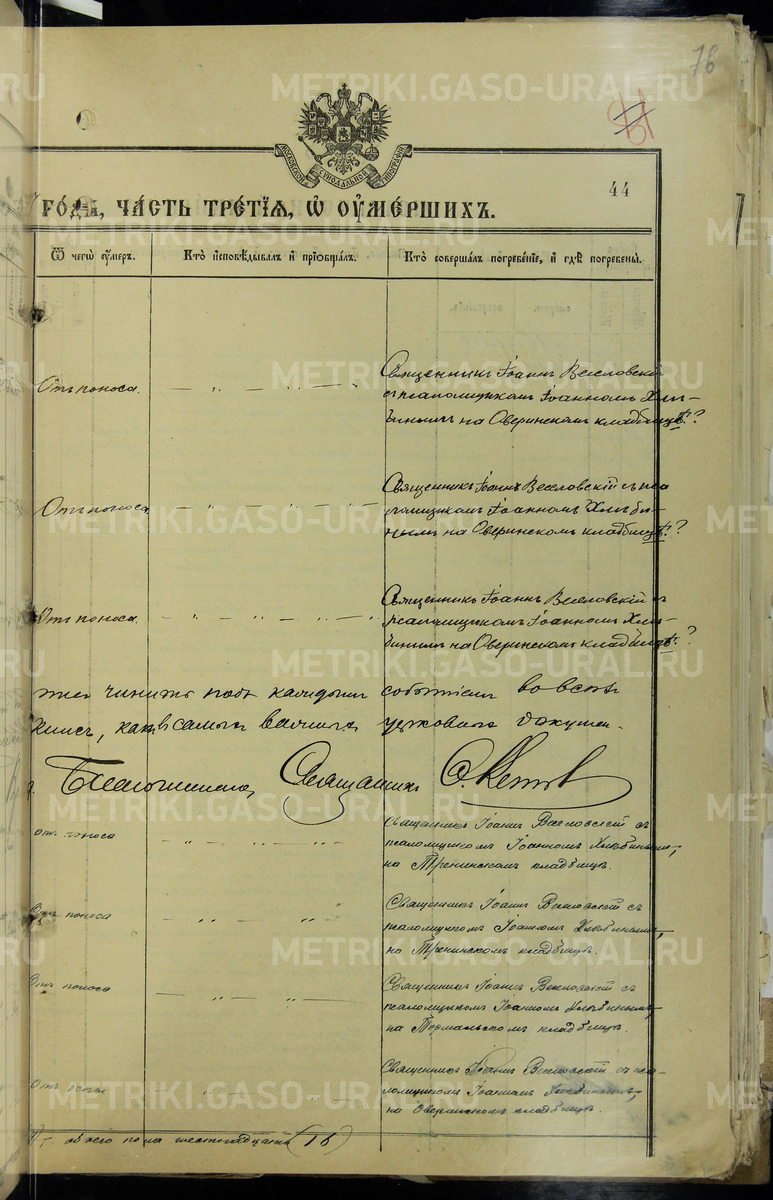 76
44
года, часть третія, ѡ оумершихъ.
Ѿ чегѡ оумеръ.
Кто исповѣдывалъ и пріобщалъ.
Кто совершалъ погребеніе, и гдѣ погребены.
Отъ поноса.
Священникъ Іоаннъ Веселовскій
съ псаломщикомъ Іоанномъ Хлѣ-
бинымъ на Оверинскомъ кладбищѣ.?
Отъ поноса
Священникъ Іоаннъ Веселовскій съ пса
ломщикомъ Іоанномъ Хлѣби-
нымъ на Оверинскомъ кладбищѣ.?
Отъ поноса.
Священникъ Іоаннъ Веселовскій съ
псаломщикомъ Іоанномъ Хлѣ-
бинымъ на Оверинскомъ кладбищѣ.?
чинить подъ каждымъ событіемъ во всѣхъ
церковныхъ докумен-
Священникъ
отъ поноса
Священникъ Іоаннъ Веселовскій съ
псаломщикомъ Іоанномъ Хлѣбинымъ,
на Тренинскомъ кладбищѣ.
Отъ поноса
Священникъ Іоаннъ Веселовскій съ
псаломщикомъ Іоанномъ Хлѣбинымъ,
на Тренинскомъ кладбищѣ.
Отъ поноса
Священникъ Іоаннъ Веселовскій съ
псаломщикомъ Іоанномъ Хлѣбинымъ,
на кладбищѣ.
Отъ оспы
Священникъ Іоаннъ Веселовскій съ пса-
ломщикомъ Іоанномъ Хлѣбинымъ,
на Оверинскомъ кладбищѣ.
обоего пола шестнадцать (16)
METRIKI.GASO-URAL.RU